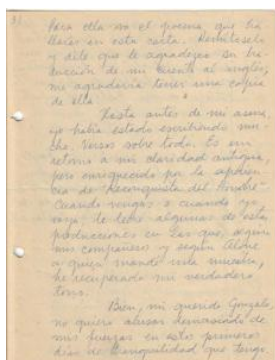 Para ella va el poema que ha
llares en esta carta. Remítesela
y dile que le agradezco su tra-
ducción de mi cuento al inglés,
me agradaría tener una copia
de ella.
Hasta antes de mi asma,
yo había estado escribiendo mu-
cho. Versos sobre todo. Es un
retorno a mi claridad antigua,
pero enriquecido por la experien-
cia de "Reconquista del Hombre"
Cuando vengas o cuando yo
vaya, te leeré algunas de estas
producciones en las que, según
mis compañeros y según
a quien mandé una muestra,
he recuperado mi verdadero
tono.
Bien, mi querido Gonzalo,
no quiero abusar demasiado de
mis fuerzas en estos primeros
días de tranquilidad que tengo